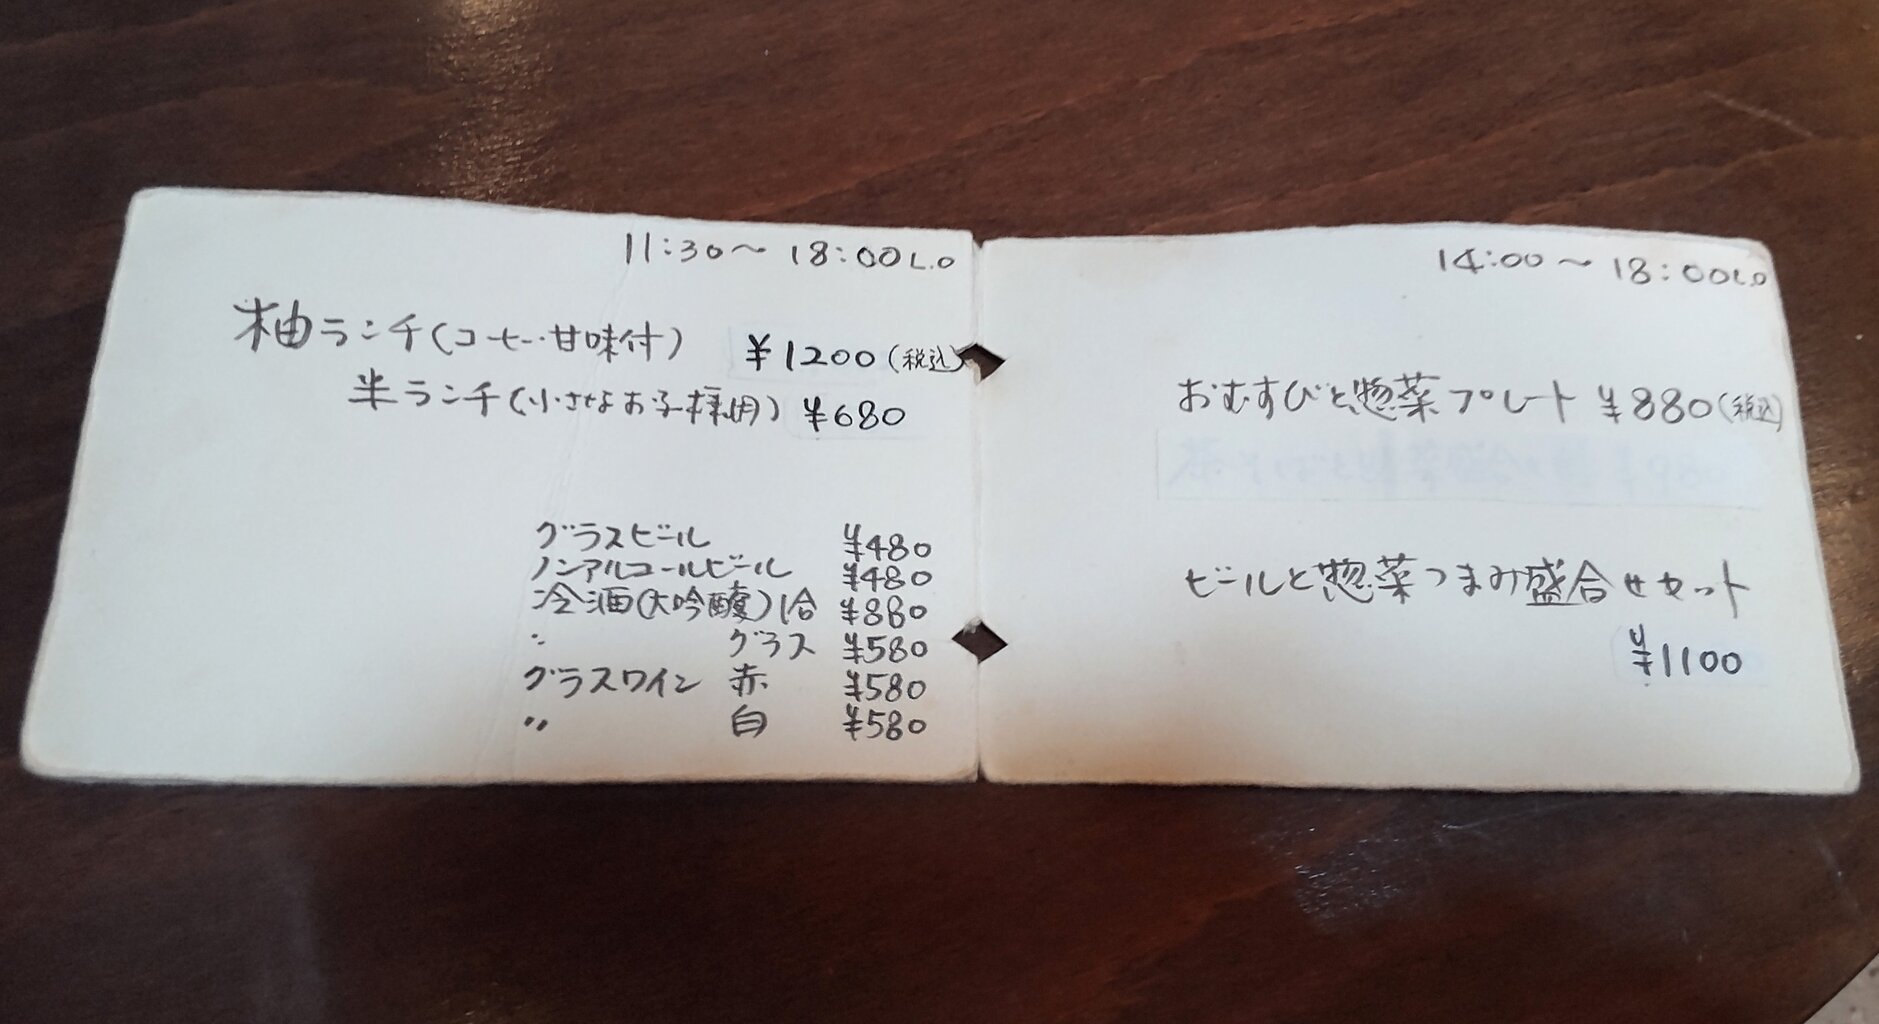 11:30～18:00 L.O
柚ランチ(コーヒー・甘味付) ¥1200(税込)
半ランチ(小さなお子様用) ¥680
グラスビール ¥480
ノンアルコールビール ¥480
冷酒(大吟醸)1合 ¥880
〃 グラス ¥580
グラスワイン 赤 ¥580
〃 白 ¥580
14:00～18:00 L.O
おむすびと惣菜プレート ¥880(税込)
ビールと惣菜つまみ盛合せセット
¥1100